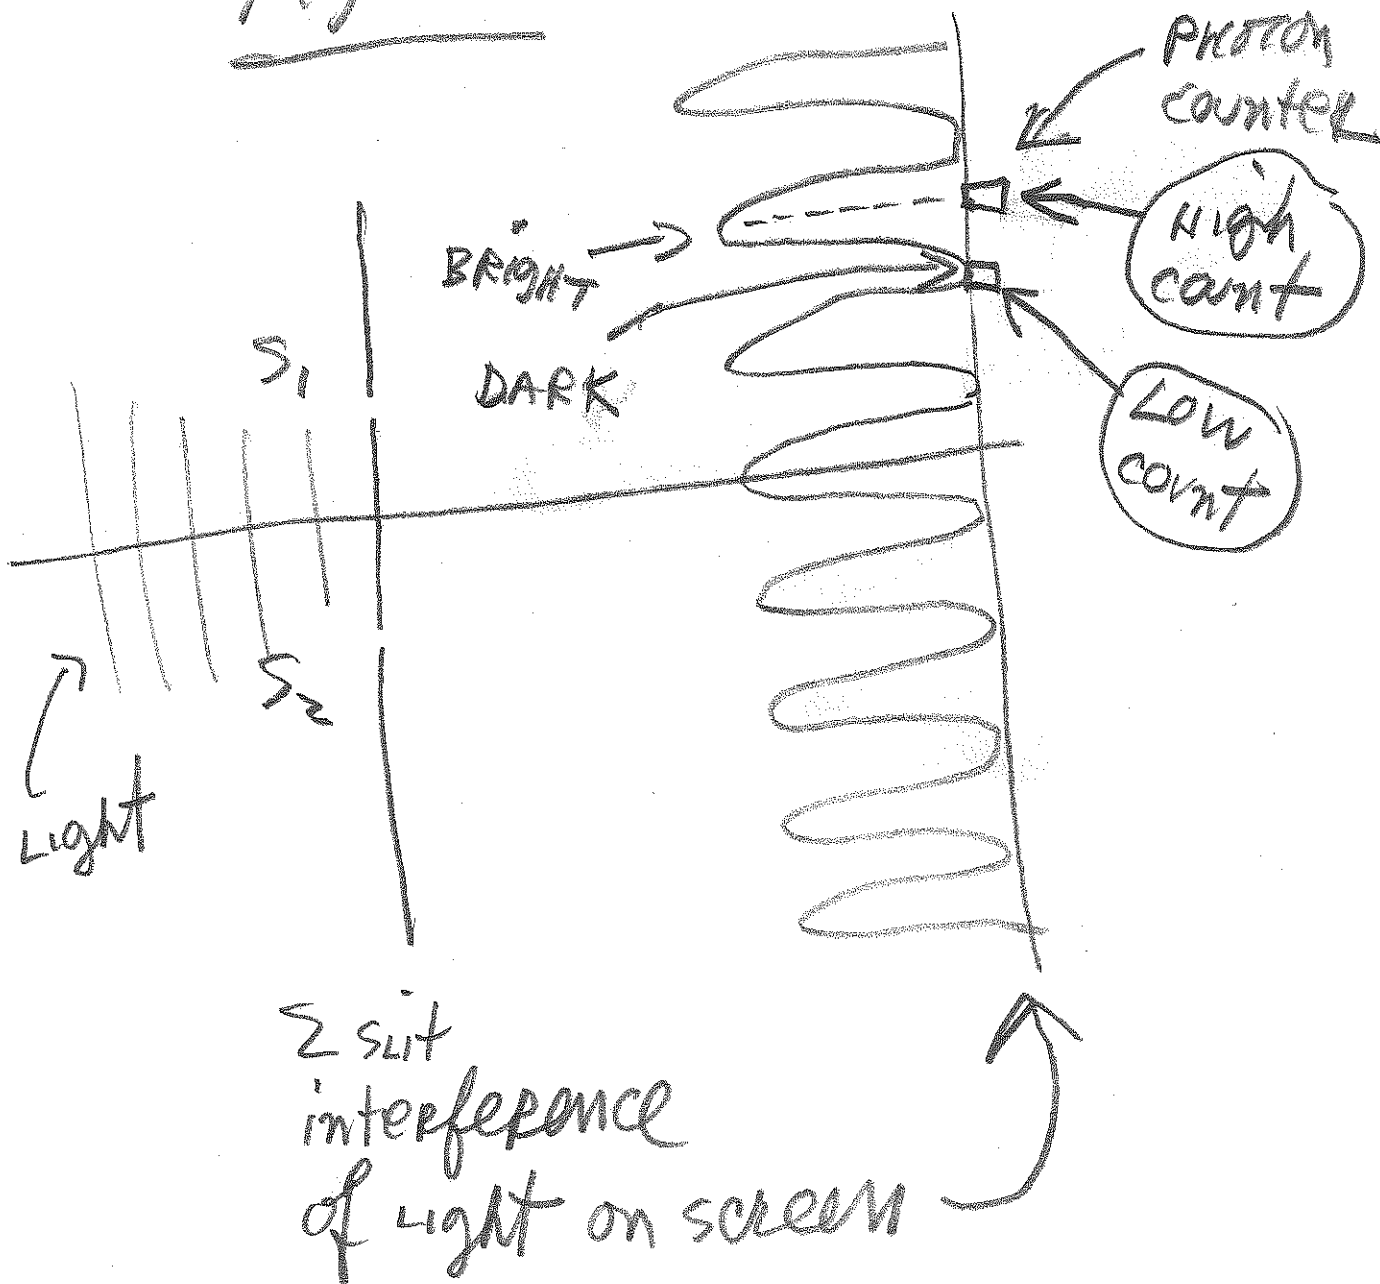 PHOTON
counter
High
count
BRIGHT
DARK
S1
Low
count
S2
Light
2 slit
interference
of Light on screen